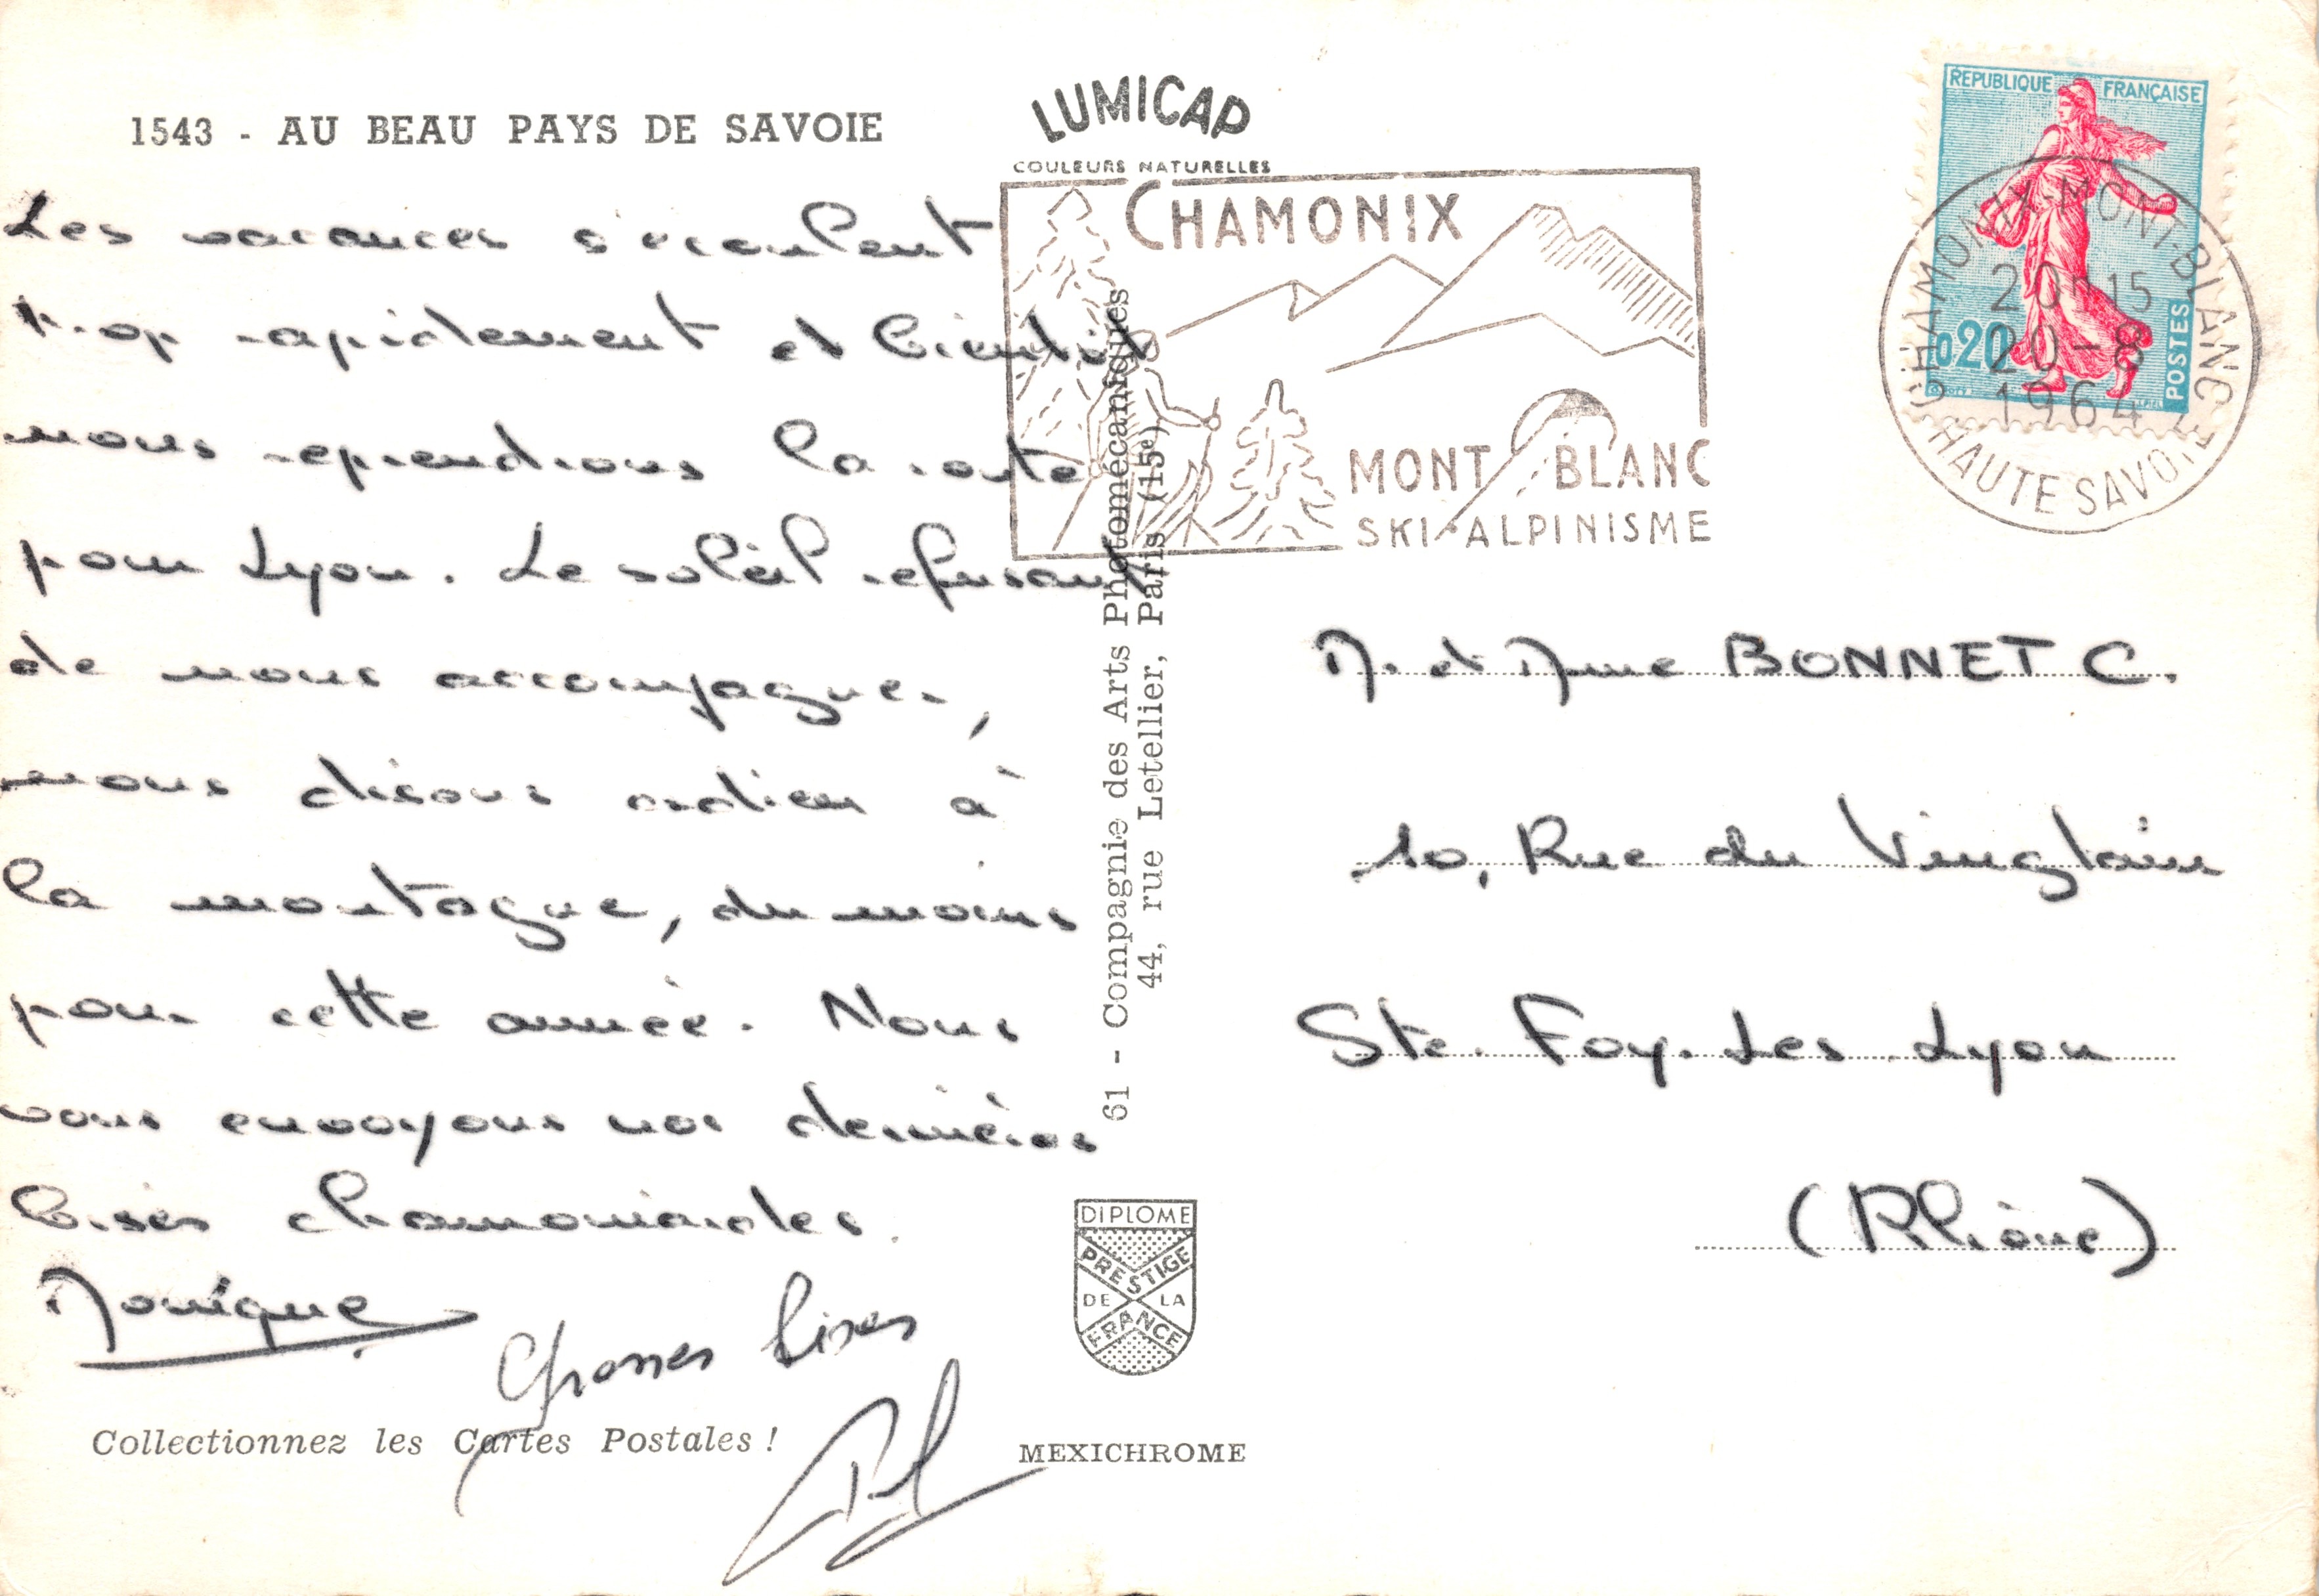 1543 - AU BEAU PAYS DE SAVOIE
Les vacances s'écoulent
trop rapidement et bientôt
nous reprendrons la route
pour Lyon. Le soleil refusant
de nous accompagner,
nous disons adieu à
la montagne, du moins
pour cette année. Nous
vous envoyons nos dernières
bises chamoniardes.
Monique
Grosses bises
Collectionnez les Cartes Postales !
LUMICAP
COULEURS NATURELLES
CHAMONIX
MONT BLANC
SKI-ALPINISME
61 - Compagnie des Arts Photomécaniques
44, rue Letellier, Paris (15e)
DIPLOME
PRESTIGE
DE LA
FRANCE
MEXICHROME
REPUBLIQUE FRANÇAISE
0,20
POSTES
CHAMONIX-MONT-BLANC
20H15
20-8
1964
HAUTE SAVOIE
M. et Mme BONNET C.
10, Rue du Vingtain
Ste. Foy. Les Lyon
(Rhône)